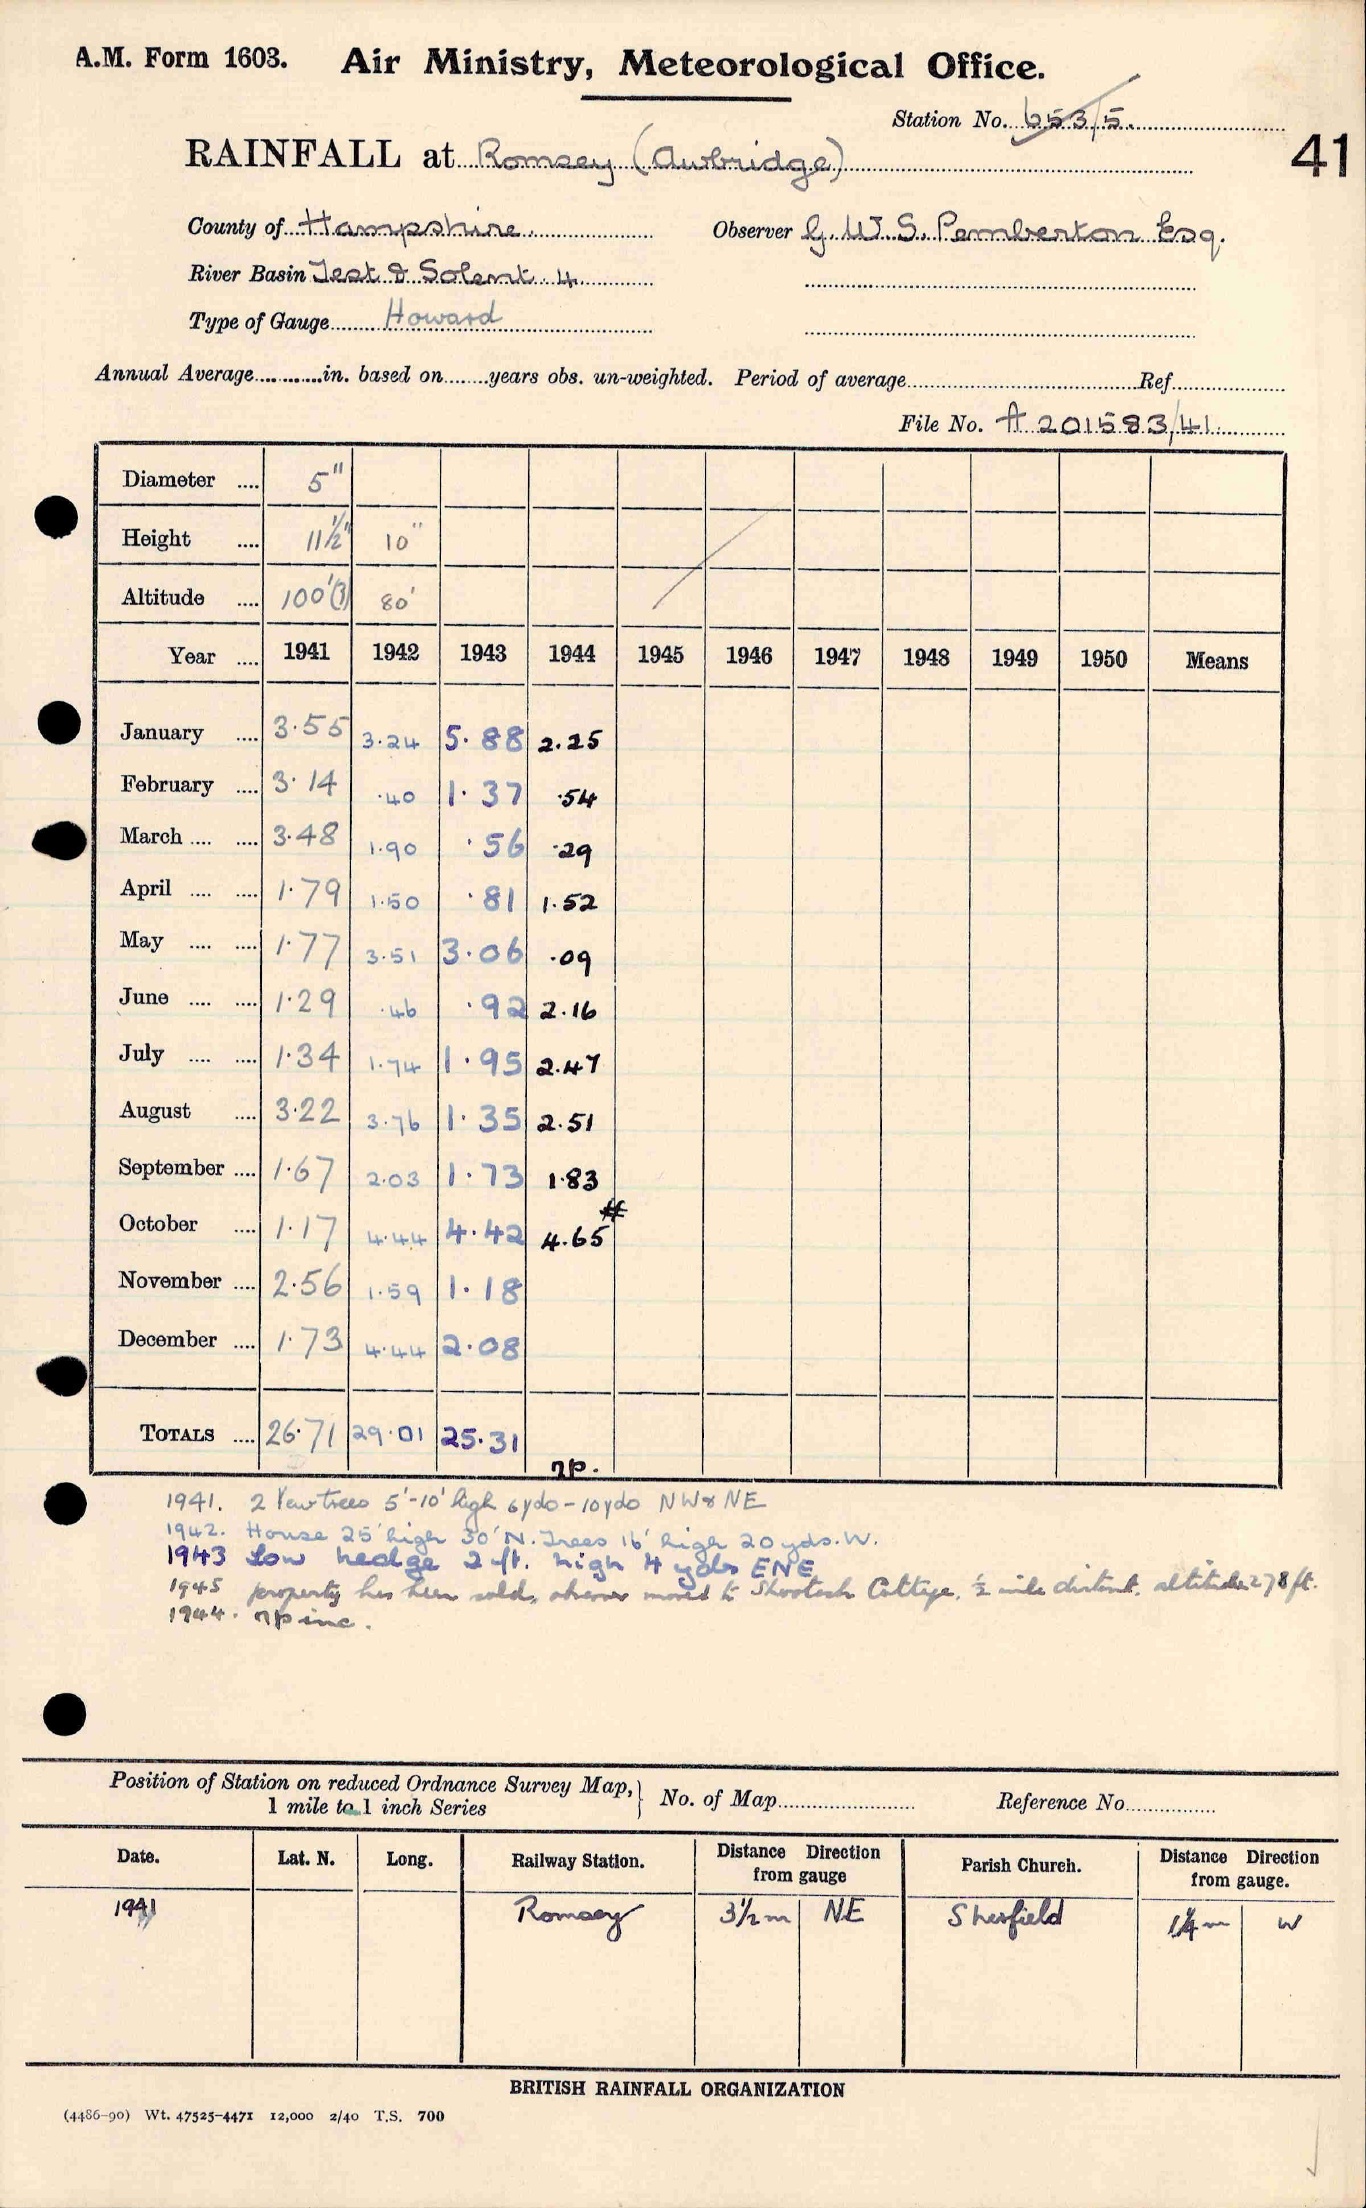 A.M. Form 1603. Air Ministry, Meteorological Office.
Station No. 653/5.
RAINFALL at Romsey (Awbridge)
41
County of Hampshire. Observer G. W. S. Pemberton Esq.
River Basin Test & Solent 4
Type of Gauge Howard
Annual Average............in. based on........years obs. un-weighted. Period of average................Ref................
File No. A 201583/41
Diameter .... 5"
Height .... 11½" 10"
Altitude .... 100'(3) 80'
Year .... 1941 1942 1943 1944 1945 1946 1947 1948 1949 1950 Means
January .... 3.55 3.24 5.88 2.25
February .... 3.14 .40 1.37 .54
March .... .... 3.48 1.90 .56 .29
April .... .... 1.79 1.50 .81 1.52
May .... .... 1.77 3.51 3.06 .09
June .... .... 1.29 .46 .92 2.16
July .... .... 1.34 1.74 1.95 2.47
August .... 3.22 3.76 1.35 2.51
September .... 1.67 2.03 1.73 1.83
October .... 1.17 4.44 4.42 4.65 #
November .... 2.56 1.59 1.18
December .... 1.73 4.44 2.08
TOTALS .... 26.71 29.01 25.31 np.
1941. 2 Yew trees 5'-10' high 6 yds - 10 yds NW & NE
1942. House 25' high 30' N. Trees 16' high 20 yds. W.
1943 Low hedge 2 ft. high 4 yds ENE
1945 property has been sold, observer moved to Shootash Cottage, ½ mile distant. altitude 278 ft.
1944. np inc.
Position of Station on reduced Ordnance Survey Map, } No. of Map................ Reference No................
1 mile to 1 inch Series
Date. Lat. N. Long. Railway Station. Distance Direction from gauge Parish Church. Distance Direction from gauge.
1941 Romsey 3½ m NE Sherfield 1¼ m W
BRITISH RAINFALL ORGANIZATION
(4486-90) Wt. 47525-4471 12,000 2/40 T.S. 700